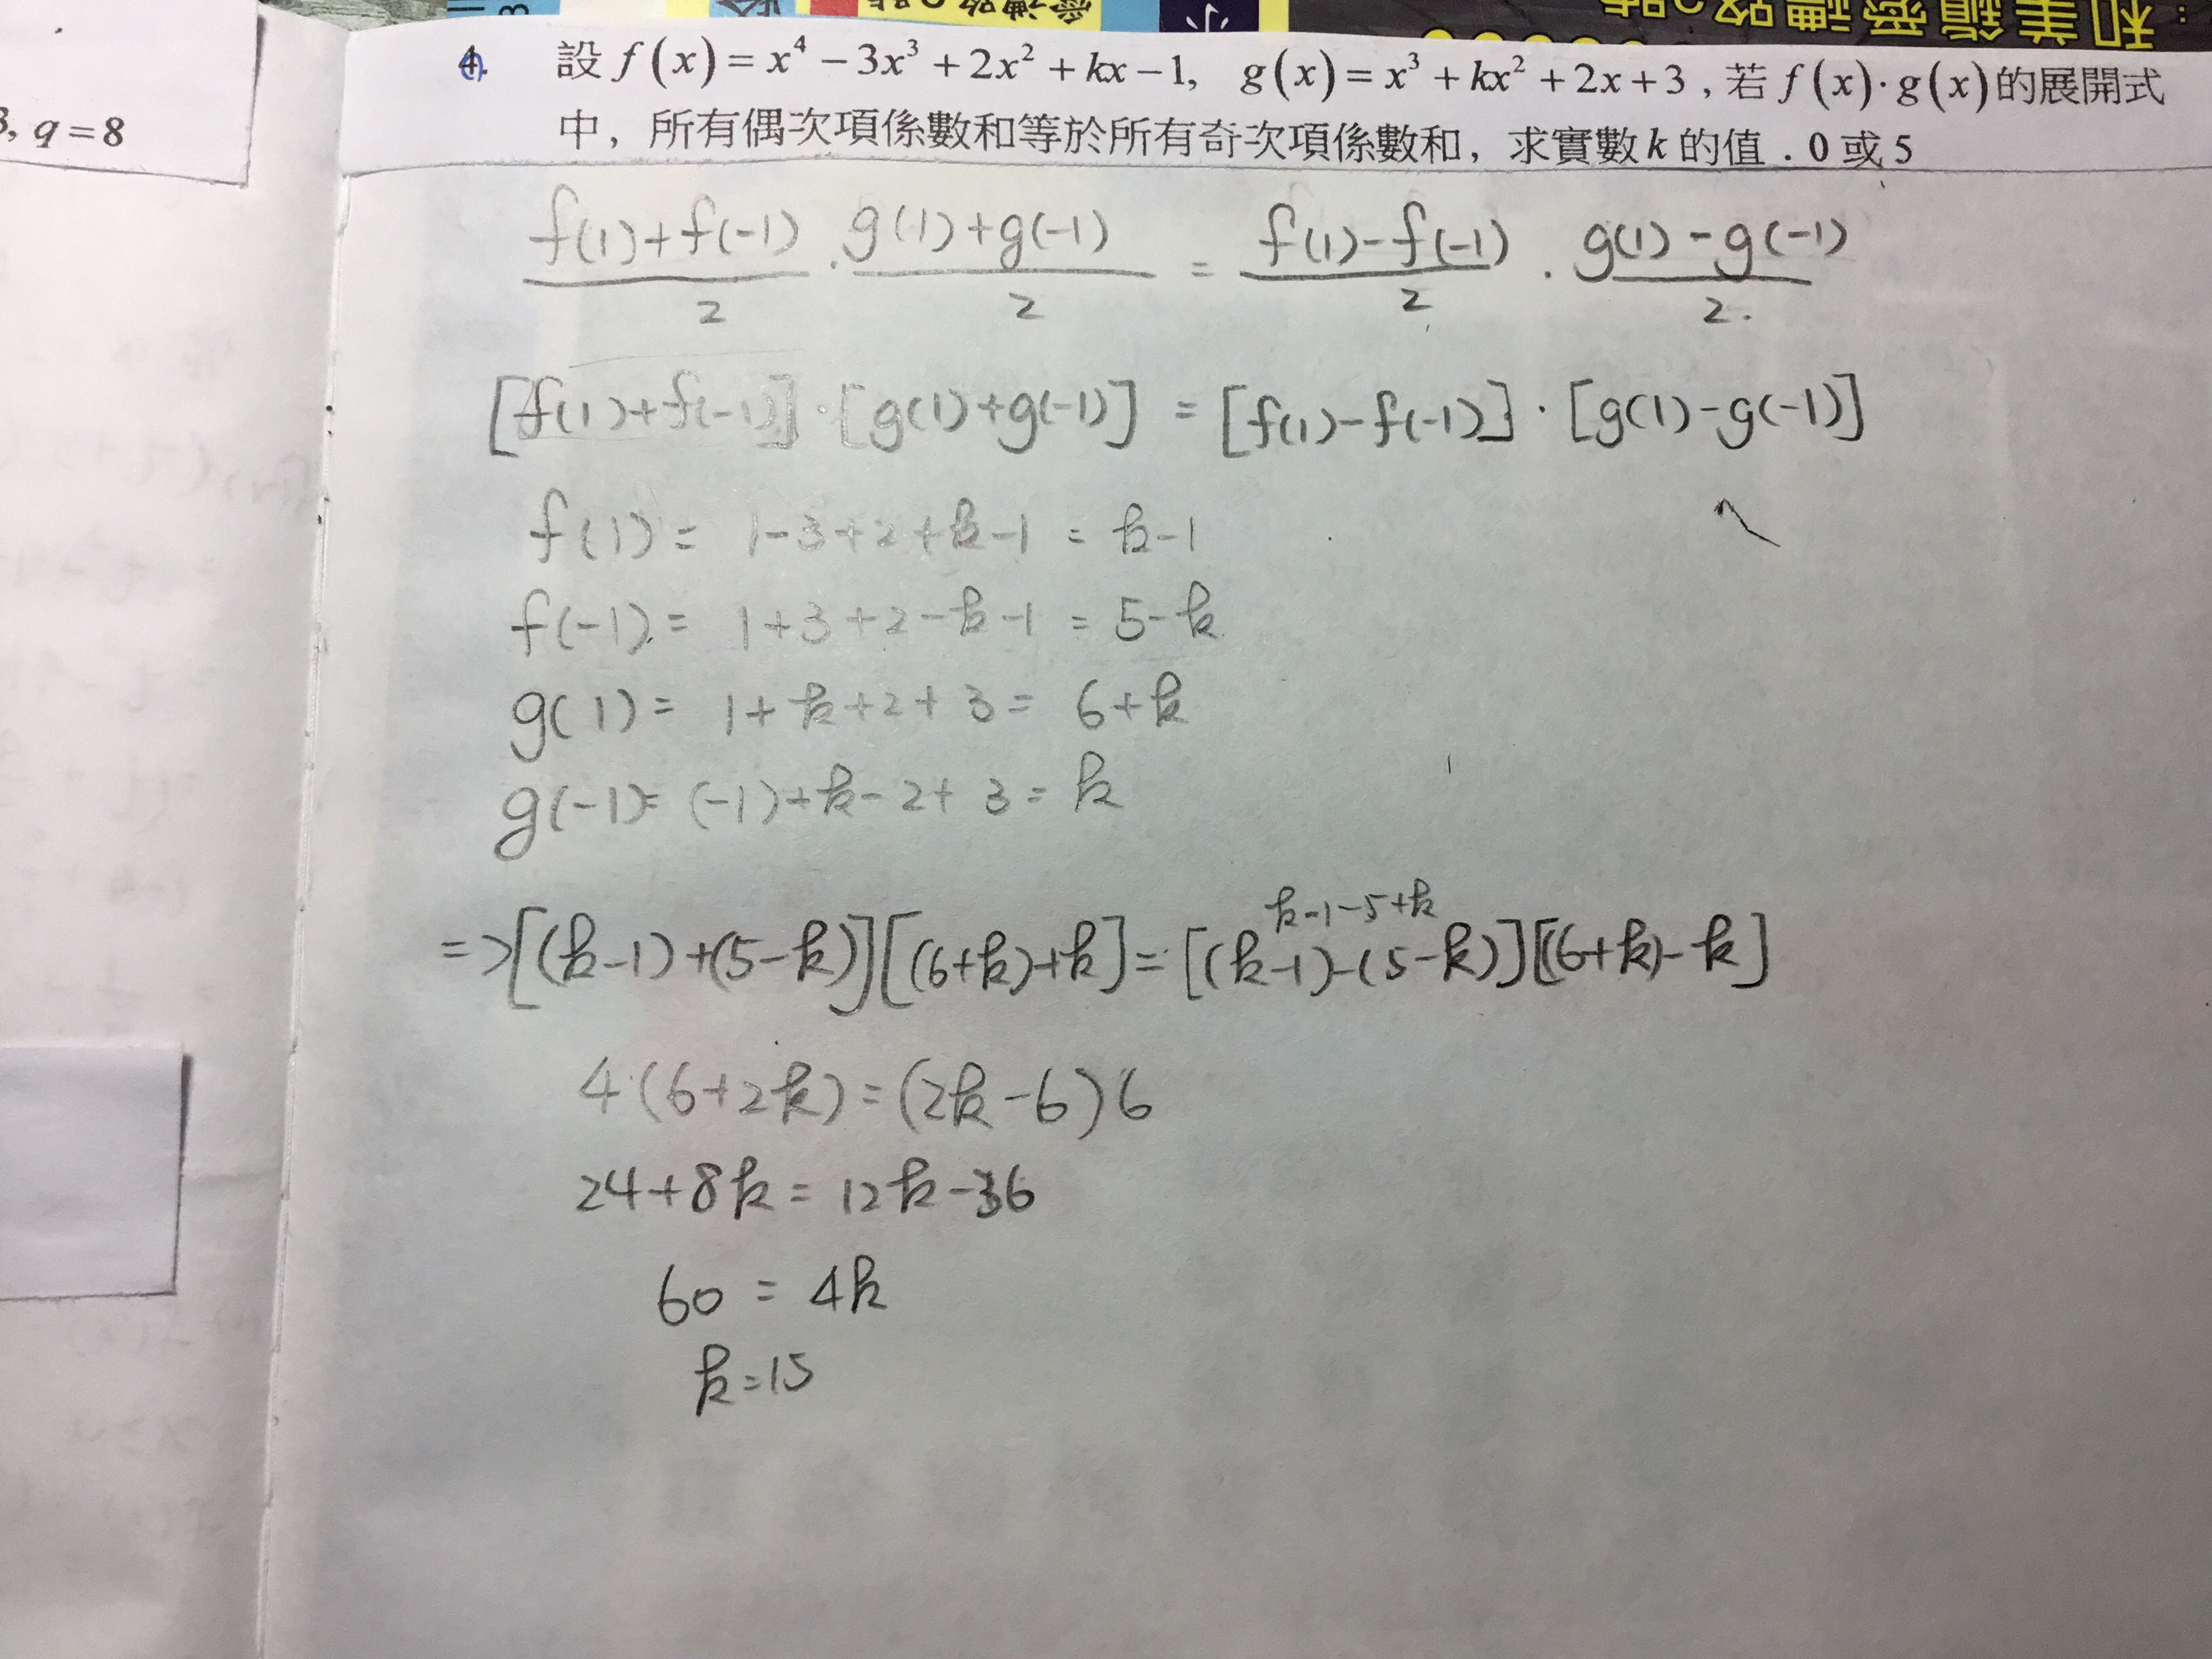 和美鎮愛禮路
3, q = 8
4. 設 f(x) = x⁴ − 3x³ + 2x² + kx − 1, g(x) = x³ + kx² + 2x + 3 , 若 f(x)·g(x) 的展開式
中，所有偶次項係數和等於所有奇次項係數和，求實數 k 的值．0 或 5
\frac{f(1)+f(-1)}{2} · \frac{g(1)+g(-1)}{2} = \frac{f(1)-f(-1)}{2} · \frac{g(1)-g(-1)}{2}.
[f(1)+f(-1)]·[g(1)+g(-1)] = [f(1)-f(-1)]·[g(1)-g(-1)]
f(1) = 1-3+2+k-1 = k-1
f(-1) = 1+3+2-k-1 = 5-k
g(1) = 1+k+2+3 = 6+k
g(-1) = (-1)+k-2+3 = k
k-1-5+k
=>[(k-1)+(5-k)][(6+k)+k] = [(k-1)-(5-k)][(6+k)-k]
4(6+2k) = (2k-6)6
24+8k = 12k-36
60 = 4k
k=15